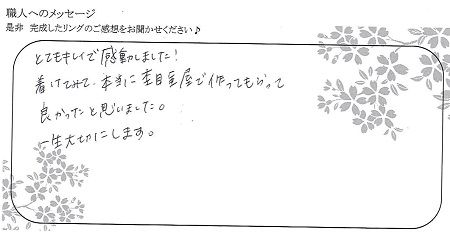 職人へのメッセージ
是非 完成したリングのご感想をお聞かせください♪
とてもキレイで感動しました!
着けてみて、本当に杢目金屋で作ってもらって
良かったと思いました。
一生大切にします。